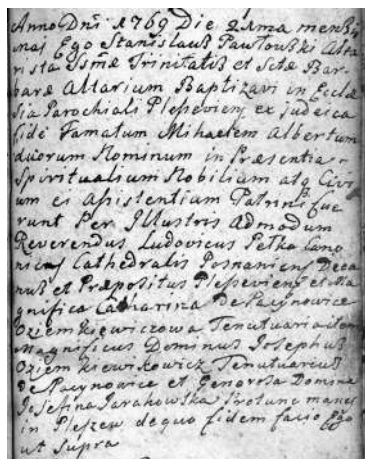 Anno Dni 1769 Die 21ma mensis
Ego Stanislaus Pawłowski Alta
rista SSmæ Trinitatis et Sctæ Bar
baræ Altarium Baptizavi in Eccle
sia Parochiali Plesevien ex judeica
fide Famatum Mihaelem Albertum
duorum Nominum in Præsentia
Spiritualium Nobilium atq Civi
um ei Asistentium Patrini fue
runt Per Illustris Admodum
Reverendus Ludovicus Cano
nicus Cathedralis Posnaniens Deca
nus et Præpositus Plesseviens et Ma
gnifica Catharina De Pacynowice
Oziemkiewiczowa Tenutuaria item
Magnificus Dominus Josephus
Tenutuarius
de Pacynowice et Generosa Domina
Josefina Jarakowska Protunc manes
in Pleszew de quo fidem facio Ego
ut Supra